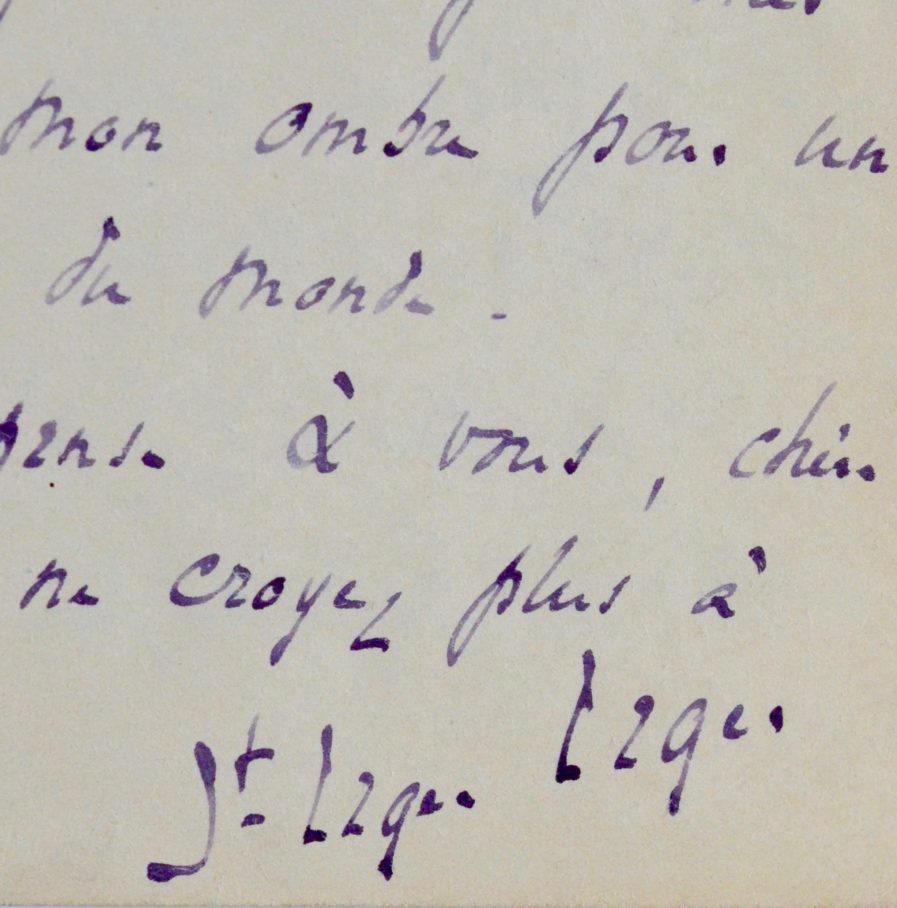 mon ombre pour un
du monde.
pense à vous, cher
ne croyez plus à
St. Leger Leger